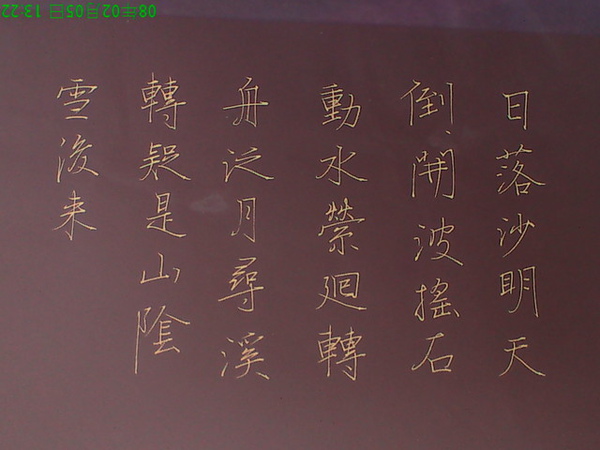 日落沙明天
倒開波搖石
動水縈廻轉
舟泛月尋溪
轉疑是山陰
雪後来
08年02月05日 13:22